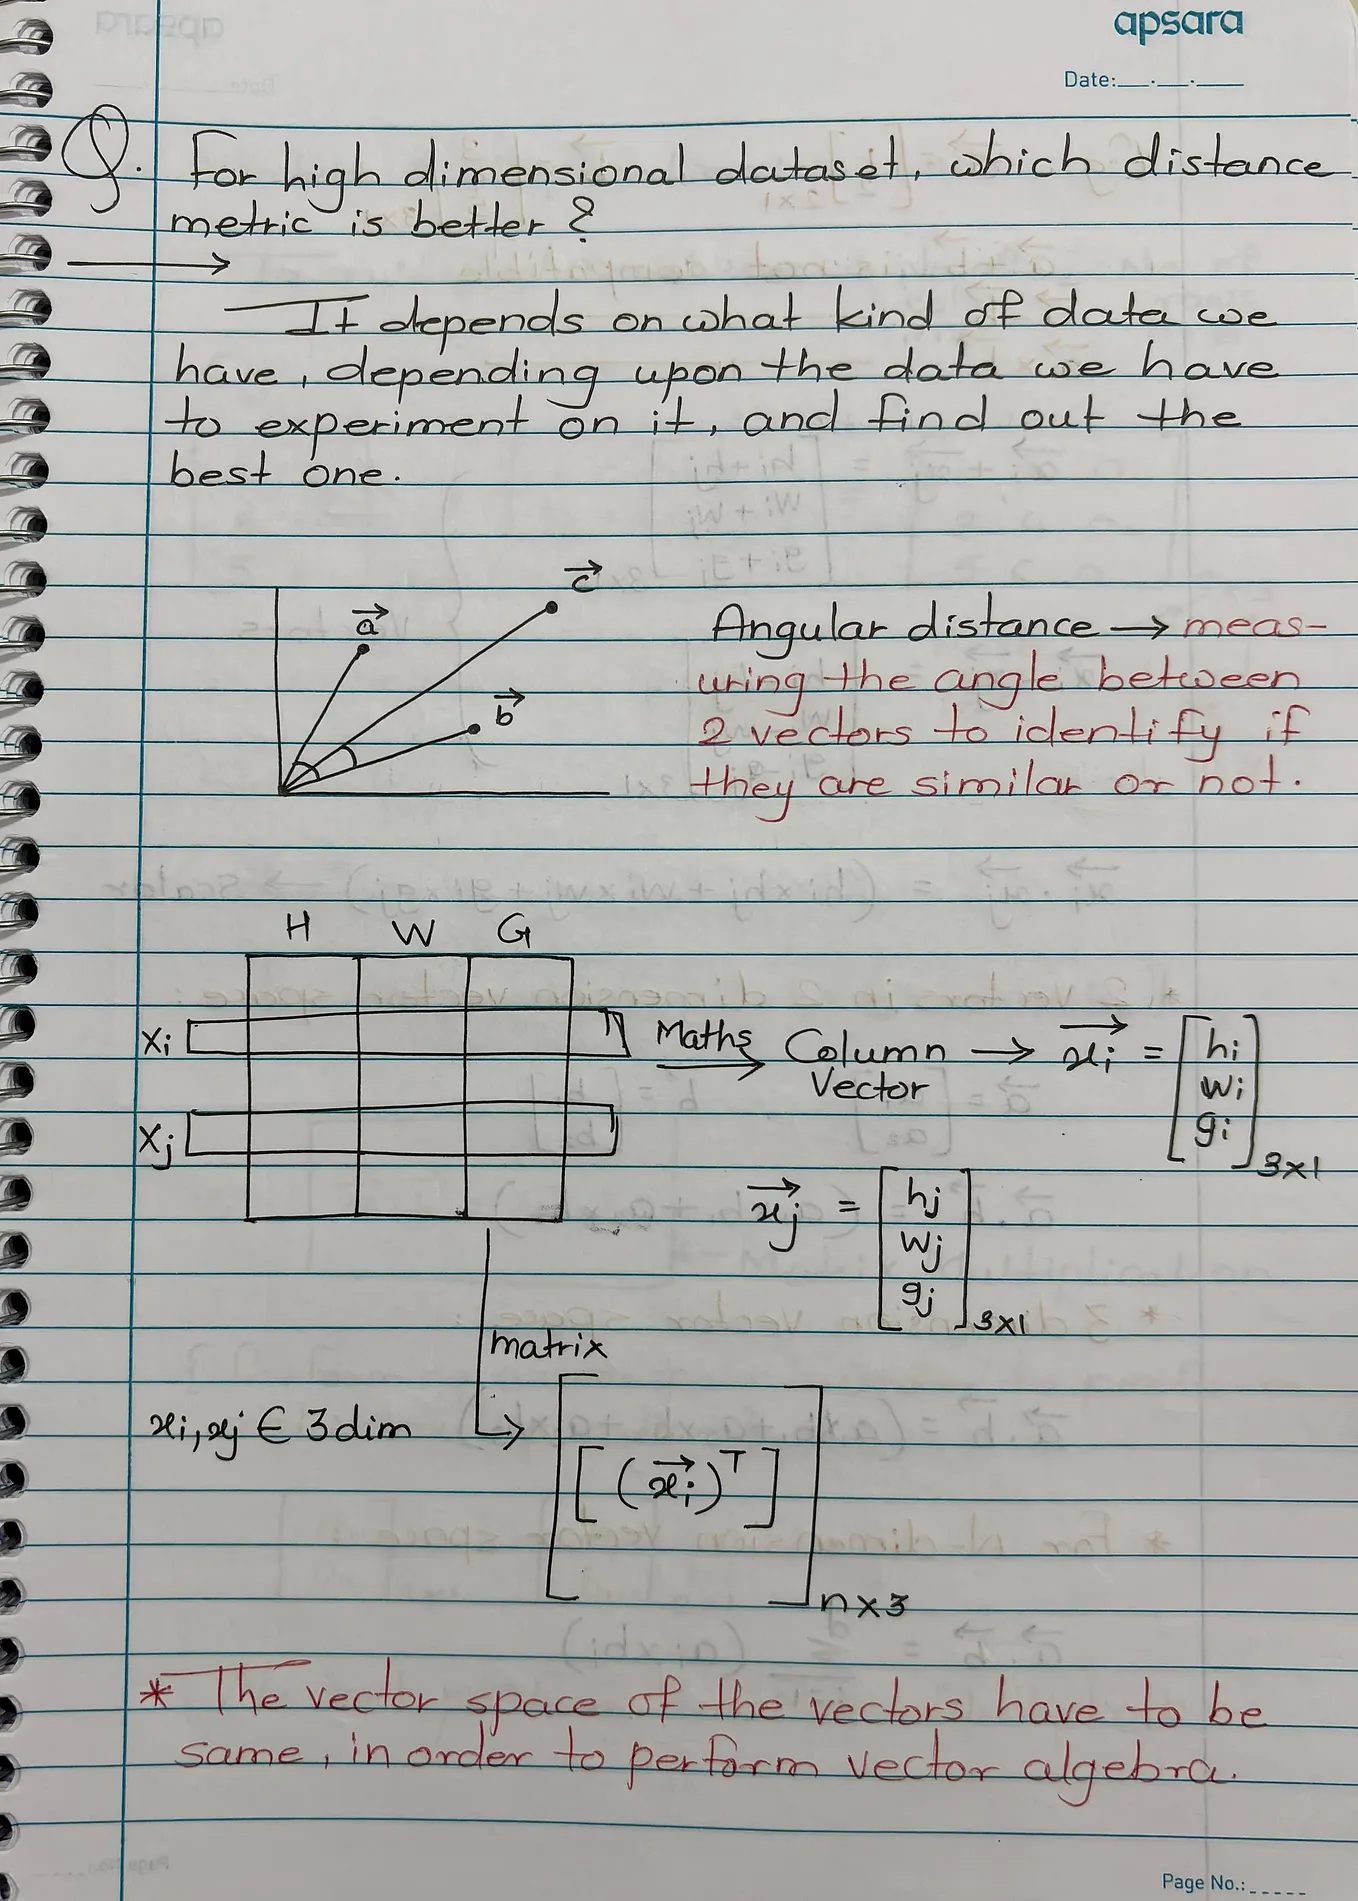 apsara
Date:__.__.__
Q. For high dimensional dataset, which distance
metric is better ?
→
It depends on what kind of data we
have, depending upon the data we have
to experiment on it, and find out the
best one.
a⃗
b⃗
c⃗
Angular distance → meas-
uring the angle between
2 vectors to identify if
they are similar or not.
H W G
Xi
Xj
Maths → Column Vector → x⃗i = [hi wi gi] 3x1
x⃗j = [hj wj gj] 3x1
matrix
xi, xj ∈ 3 dim → [ [ (x⃗i)ᵀ ] ] n x 3
* The vector space of the vectors have to be
same, in order to perform vector algebra.
Page No.:_____